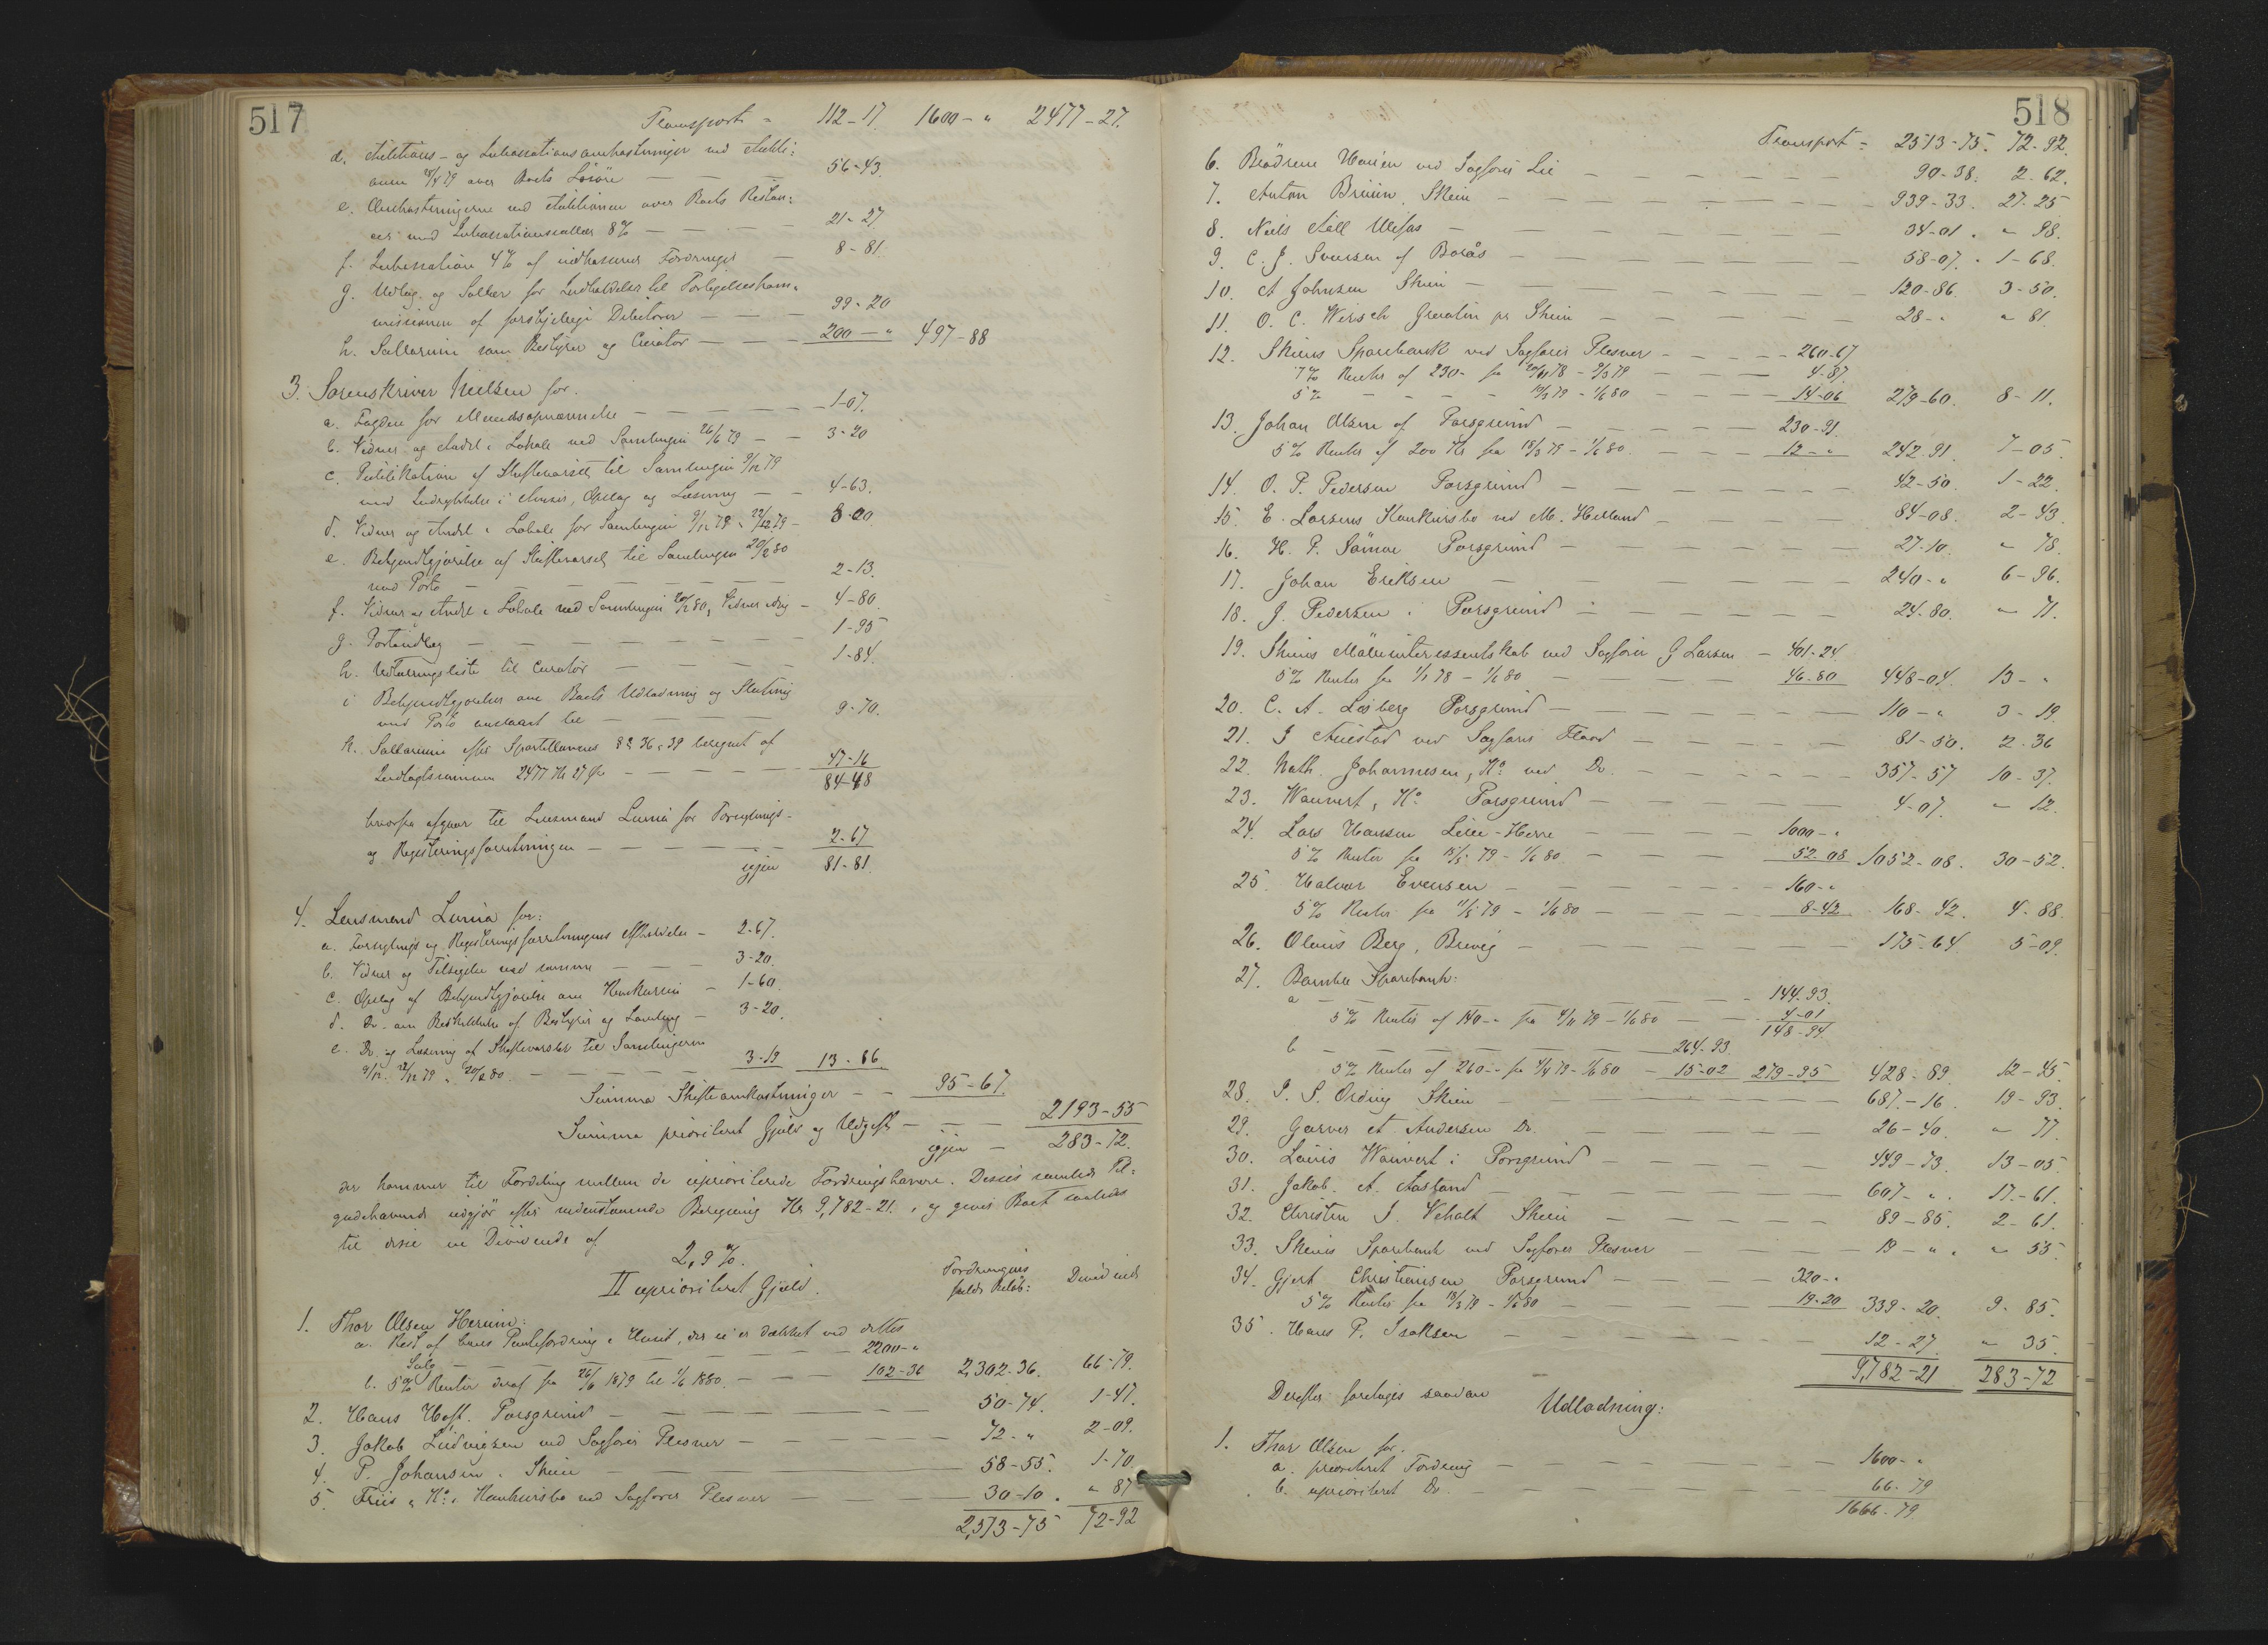 517
Transport = 112-17. 1600-" 2477-27.
d. Auktions- og Inkassationsomkostninger ved Aukti=
onen 28/4 79 over Boets Løsøre — 56-43.
e. Omkostningerne ved Auktionen over Boets Restan=
cer med Inkassationssallær 8% — 21-27
f. Inkassation 4% af indkasserede Fordringer — 8-81.
g. Udlæg og Sallær for Indkaldelser til Forligelseskom=
missionen af forskjellige Debitorer — 99-20
h. Sallarium som Bestyrer og Curator — 200-" 497-88
3. Sorenskriver Nielsen for.
a. Fogden for Mændsopnævnelse — 1-07.
b. Vidner og Andel i Lokale ved Samlingen 26/6 79 — 3-20
c. Publikation af Skiftevarsel til Samlingen 9/12 79
med Indrykkelse i Aviser, Opslag og Læsning — 4-63.
d. Vidner og Andel i Lokale for Samlingen 9/12 79 & 22/12 79 — 8-00
e. Bekjendtgjørelse af Skiftevarsel til Samlingen 20/2 80
med Porto — 2-13.
f. Vidner og Andel i Lokale ved Samlingen 20/2 80, — 4-80.
g. Portoudlæg — 1-95
h. til Curator — 1-84.
i Bekjendtgjørelser om Boets Udlodning og Slutning
med Porto anslaaet til — 9-70.
k. Sallarium efter Sportellovens §§ 36 & 39 beregnet af
Indtægtssummen 2477 Kr 27 Øre — 47-16
84-48
hvorfra afgaar til Lensmand Lunia for Forseglings-
og Registreringsforretningen — 2-67
igjen 81-81.
4. Lensmand Lunia for:
a. Forseglings og Registreringsforretningens Afholdelse — 2-67.
b. Vidner og Tilsigelse ved samme — 3-20.
c. Opslag af Bekjendtgjørelse om Konkursen — 1-60.
d. Do. om Beskikkelse af Bestyrer og Samling — 3-20.
e. Do. og Læsning af Skiftevarsler til Samlingerne
9/12. 22/12 79 & 20/2 80. — 3-19 13-86
Summa Skifteomkostninger — 95-67.
Summa prioriteret Gjæld og Udgift — 2193-55
igjen — 283-72.
der kommer til Fordeling mellem de uprioriterede Fordringshavere. Disses samlede Til=
godehavende udgjør efter nedenstaaende Beregning Kr 9,782-21., og giver Boet saaledes
til disse en Dividende af
2,9%.
II uprioriteret Gjæld.
Fordringens
fulde Beløb: Dividende
1. Thor Olsen Herum:
a. Rest af hans Pantefordring i Huset, der ei er dækket ved dettes
Salg — 2200-"
b. 5% Renter deraf fra 26/6 1879 til 1/6 1880. — 102-36 2,302-36. 66-79.
2. Hans Hoff. Porsgrund — 50-74. 1-47.
3. Jakob Ludvigsen ved Sagfører Plesner — 72-" 2-09.
4. P. Johansen i Skien — 58-55. 1-70
5. Friis & Ko.s Konkursbo ved Sagfører Plesner — 30-10. " 87
2,513-75 72-92
518
Transport = 2513-75. 72-92.
6. Brødrene Hansen ved Sagfører Lie — 90-38. 2-62.
7. Anton Bruun, Skien — 939-33. 27-25
8. Niels Aall Ulefos — 34-01. " 98.
9. C. J. Svensen af Borås — 58-07. 1-68.
10. A Johnsen Skien — 120-86. 3-50.
11. O. C. Wersch Gruatin pr Skien — 28-" " 81.
12. Skiens Sparebank ved Sagfører Plesner — 260-67
7% Renter af 230- fra 20/11 78 - 9/3 79 — 4-87.
5% — 10/3 79 - 1/6 80 — 14-06 279-60. 8-11.
13. Johan Olsen af Porsgrund — 230-91.
5% Renter af 200 Kr fra 18/3 79 - 1/6 80. — 12-" 242-91. 7-05.
14. O. P. Pedersen Porsgrund — 42-50. 1-22.
15. E. Larsens Konkursbo ved M. Helland — 84-08. 2-43.
16. H. P. Sømoe Porsgrund — 27-10. " 78.
17. Johan Eriksen — 240-" 6-96.
18. J. Pedersen i Porsgrund — 24-80. " 71.
19. Skiens Mølleinteressentskab ved Sagfører G Larsen — 401-24.
5% Renter fra 1/1 78 - 1/6 80 — 46-80 448-04. 13-"
20. C. A. Losberg Porsgrund — 110-" 3-19.
21. J Aulestad ved Sagfører Flood — 81-50. 2-36
22. Nath. Johannesen & Ko. ved Do. — 357-57 10-37.
23. Wauvert & Ko. Porsgrund — 4-07. " 12.
24. Lars Hansen Lille-Herre — 1000-"
5% Renter fra 15/5 79 - 1/6 80. — 52-08 1052-08. 30-52.
25. Halvor Evensen — 160-"
5% Renter fra 11/5 79 - 1/6 80 — 8-42 168-42. 4-88.
26. Olaus Berg, Brevig — 175-64. 5-09.
27. Bamble Sparebank:
a — 144-93.
5% Renter af 140-" fra 4/11 79 - 1/6 80 — 4-01
148-94.
b — 264-93.
5% Renter af 260-" fra 4/4 79 - 1/6 80 — 15-02 279-95 428-89. 12-45.
28. P. S. Ording Skien — 687-16. 19-93.
29. Garver et Andersen Do. — 26-40. " 77.
30. Lauis Wauvert i Porsgrund — 449-73. 13-05.
31. Jakob A. Aasland — 607-". 17-61.
32. Christen J. Vehalt Skien — 89-85. 2-61.
33. Skiens Sparebank ved Sagfører Plesner — 19-". " 55.
34. Gjert Christiansen Porsgrund — 320-"
5% Renter fra 18/3 79 - 1/6 80 — 19-20 339-20. 9-85.
35. Hans P. Isaksen — 12-27. " 35.
9,782-21 283-72
Derefter foretages saadan
Udlodning:
1. Thor Olsen for.
a. prioriteret Fordring — 1600-"
b. uprioriteret Do. — 66-79
1666-79